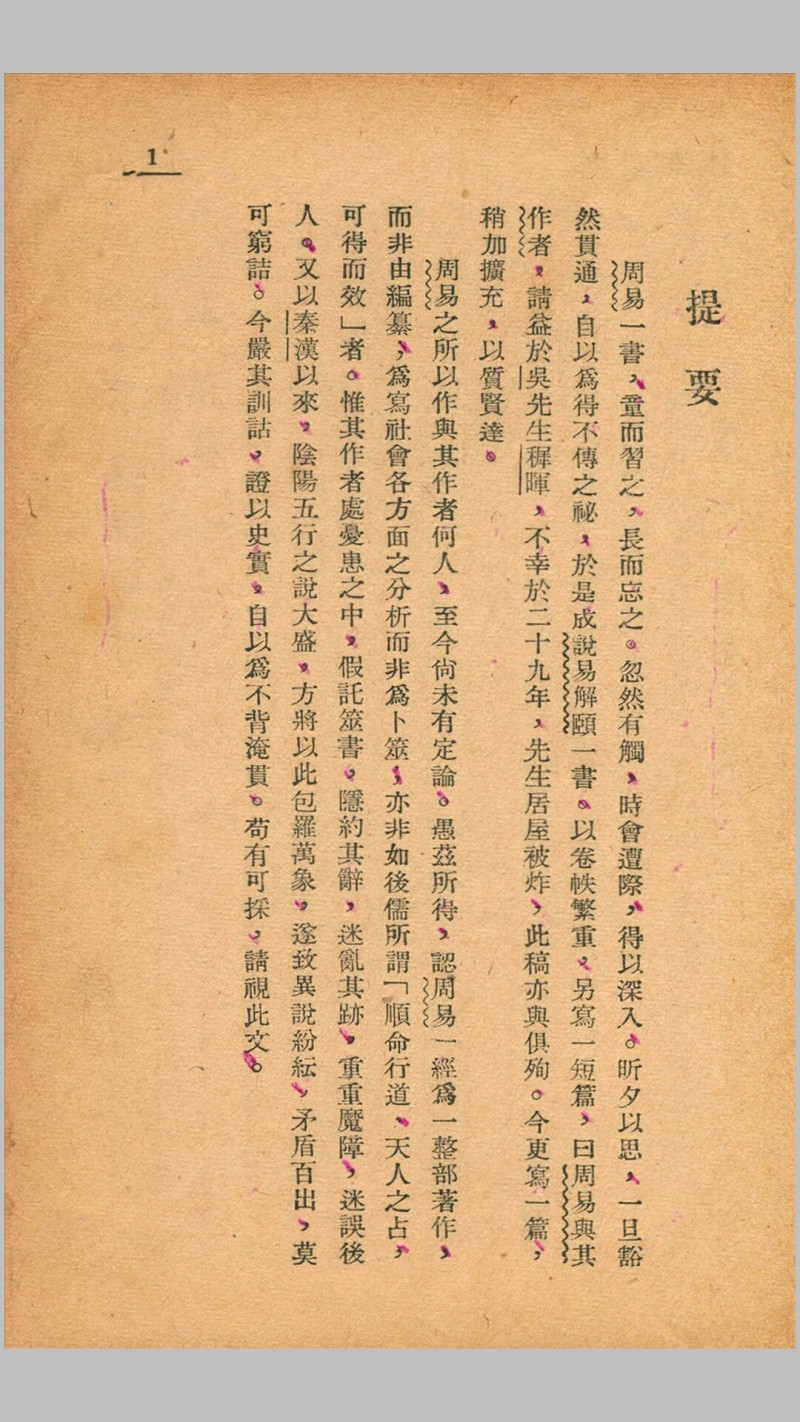 提要
周易一書，童而習之，長而忘之。忽然有觸，時會遭際，得以深入。昕夕以思，一旦豁
然貫通，自以爲得不傳之祕，於是成說易解頤一書。以卷帙繁重，另寫一短篇，曰周易與其
作者，請益於吳先生稺暉，不幸於二十九年，先生居屋被炸，此稿亦與俱殉。今更寫一篇，
稍加擴充，以質賢達。
周易之所以作與其作者何人，至今尙未有定論。愚茲所得，認周易一經爲一整部著作，
而非由編纂，爲寫社會各方面之分析而非爲卜筮，亦非如後儒所謂「順命行道、天人之占，
可得而效」者。惟其作者處憂患之中，假託筮書，隱約其辭，迷亂其跡，重重魔障，迷誤後
人。又以秦漢以來，陰陽五行之說大盛，方將以此包羅萬象，遂致異說紛紜，矛盾百出，莫
可窮詰。今嚴其訓詁，證以史實，自以爲不背淹貫。苟有可採，請視此文。
1